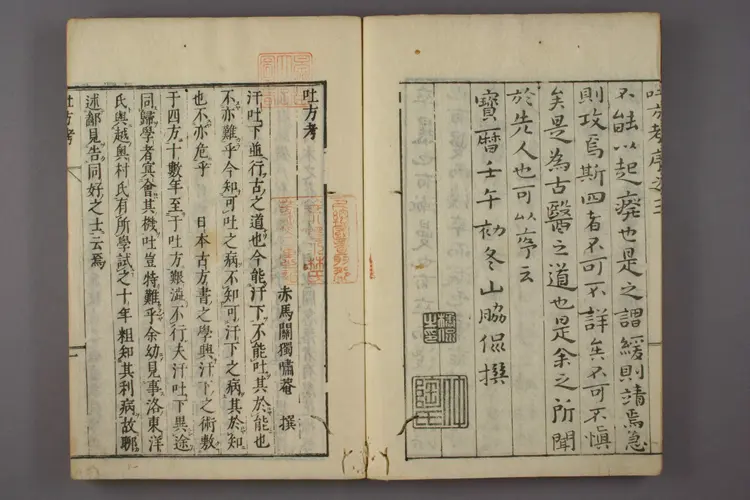 吐方考序之二
不能以起癈也是之謂緩則靖焉急
則攻焉斯四者不可不詳矣不可不慎
矣是為古醫之道也是余之所聞
於先人也可以序云
寶曆壬午初冬山脇侃撰
吐方考
赤馬關獨嘯菴 撰
汗吐下並行古之道也今能汗下不能吐其於能也
不亦難乎今知可吐之病不知可汗下之病其於知
也不亦危乎 日本古方書之學興汗下之術數
于四方十數年至于吐方艱澁不行夫汗吐下異途
同歸學者冥會其機吐豈特難乎余幼見事洛東洋
氏與越奧村氏有所學試之十年粗知其利病故聊
述鄙見告同好之士云焉
吐方考